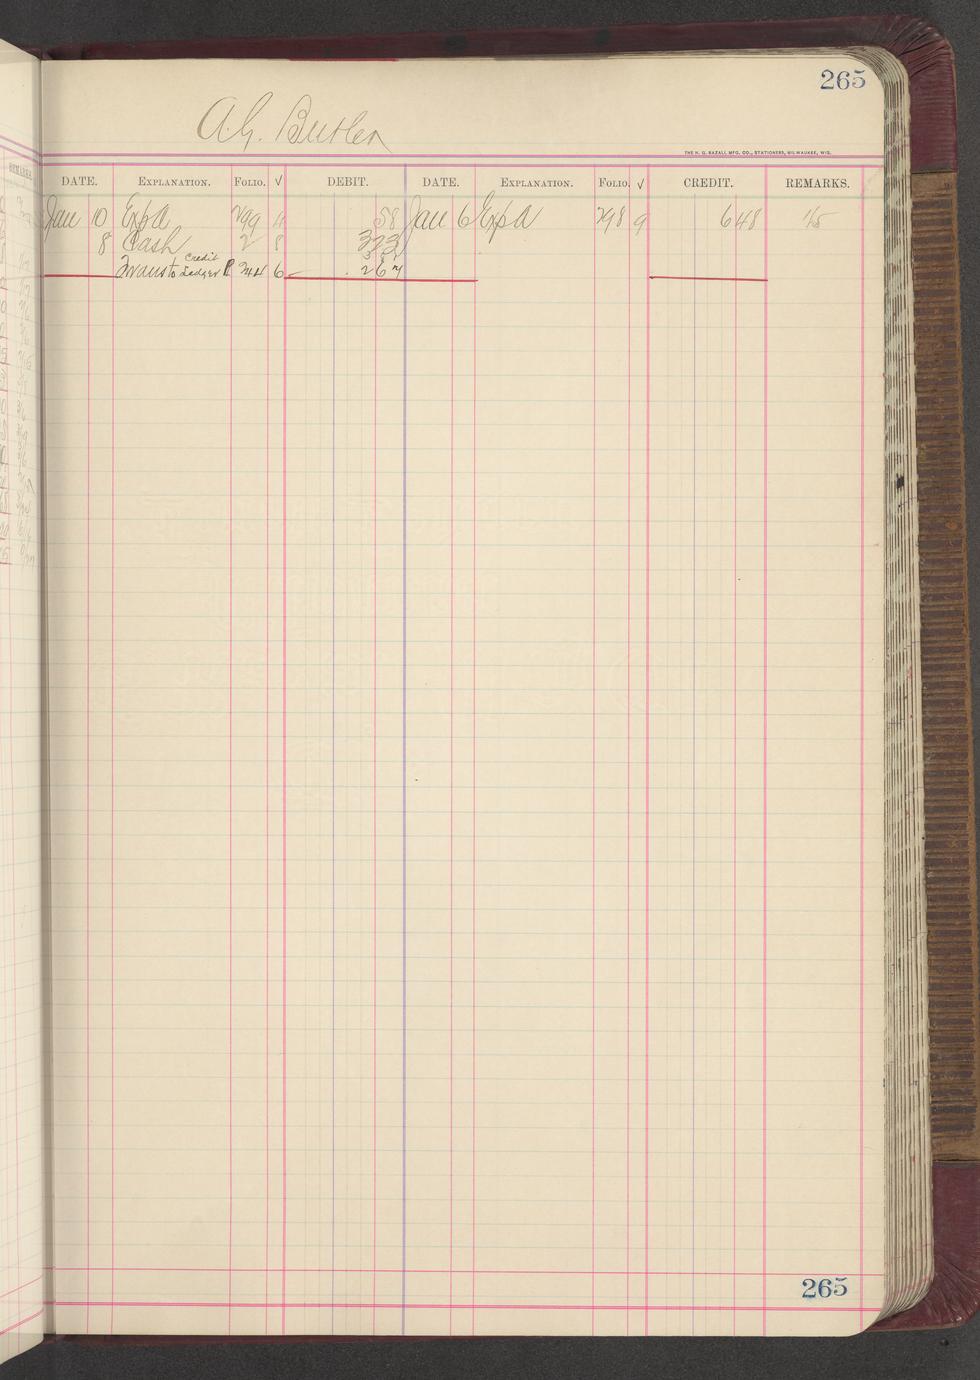 265
A.G. Butler
THE H. G. RAZALL MFG. CO., STATIONERS, MILWAUKEE, WIS.
DATE. EXPLANATION. FOLIO. √ DEBIT. DATE. EXPLANATION. FOLIO. √ CREDIT. REMARKS.
Jan 10 Exp a 299 4 58 Jan 6 Exp a 298 9 648 1/5
8 Cash 2 8 323
Trans to Credit Ledger P 244 6 267
265